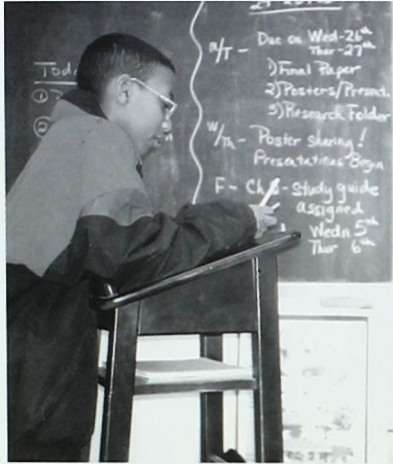 M/T - Due on Wed-26th
Thur-27th
1) Final Paper
2) Posters/Present.
3) Research Folder
W/Th - Poster sharing!
Presentations Begin
F - Ch - Study guide
assigned
Wedn 5th
Thur 6th
①
②